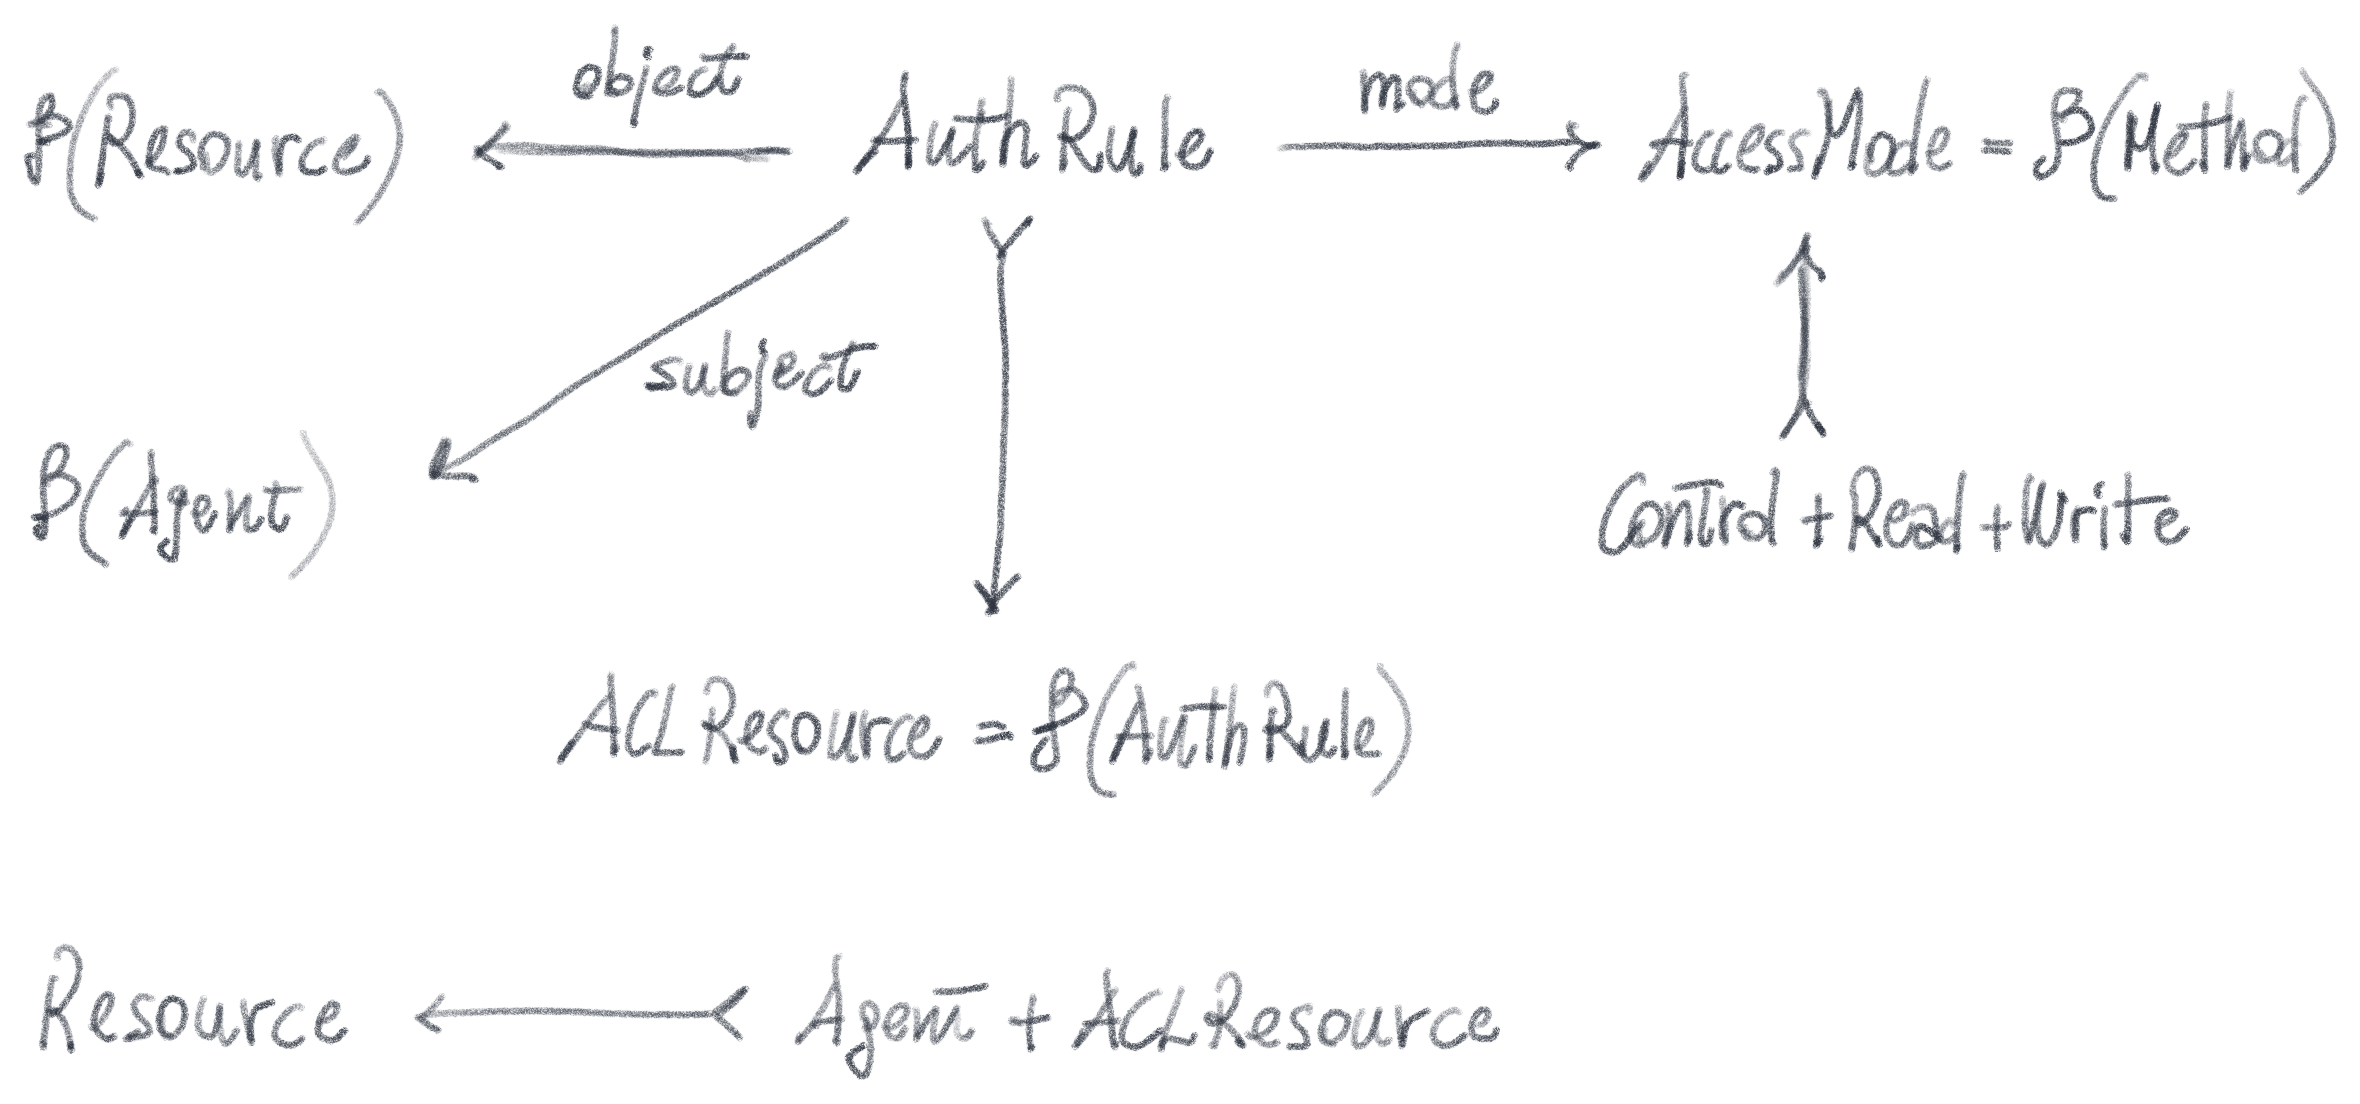 object mode
℘(Resource) AuthRule AccessMode = ℘(Method)
subject
℘(Agent) Control + Read + Write
ACLResource = ℘(AuthRule)
Resource Agent + ACLResource